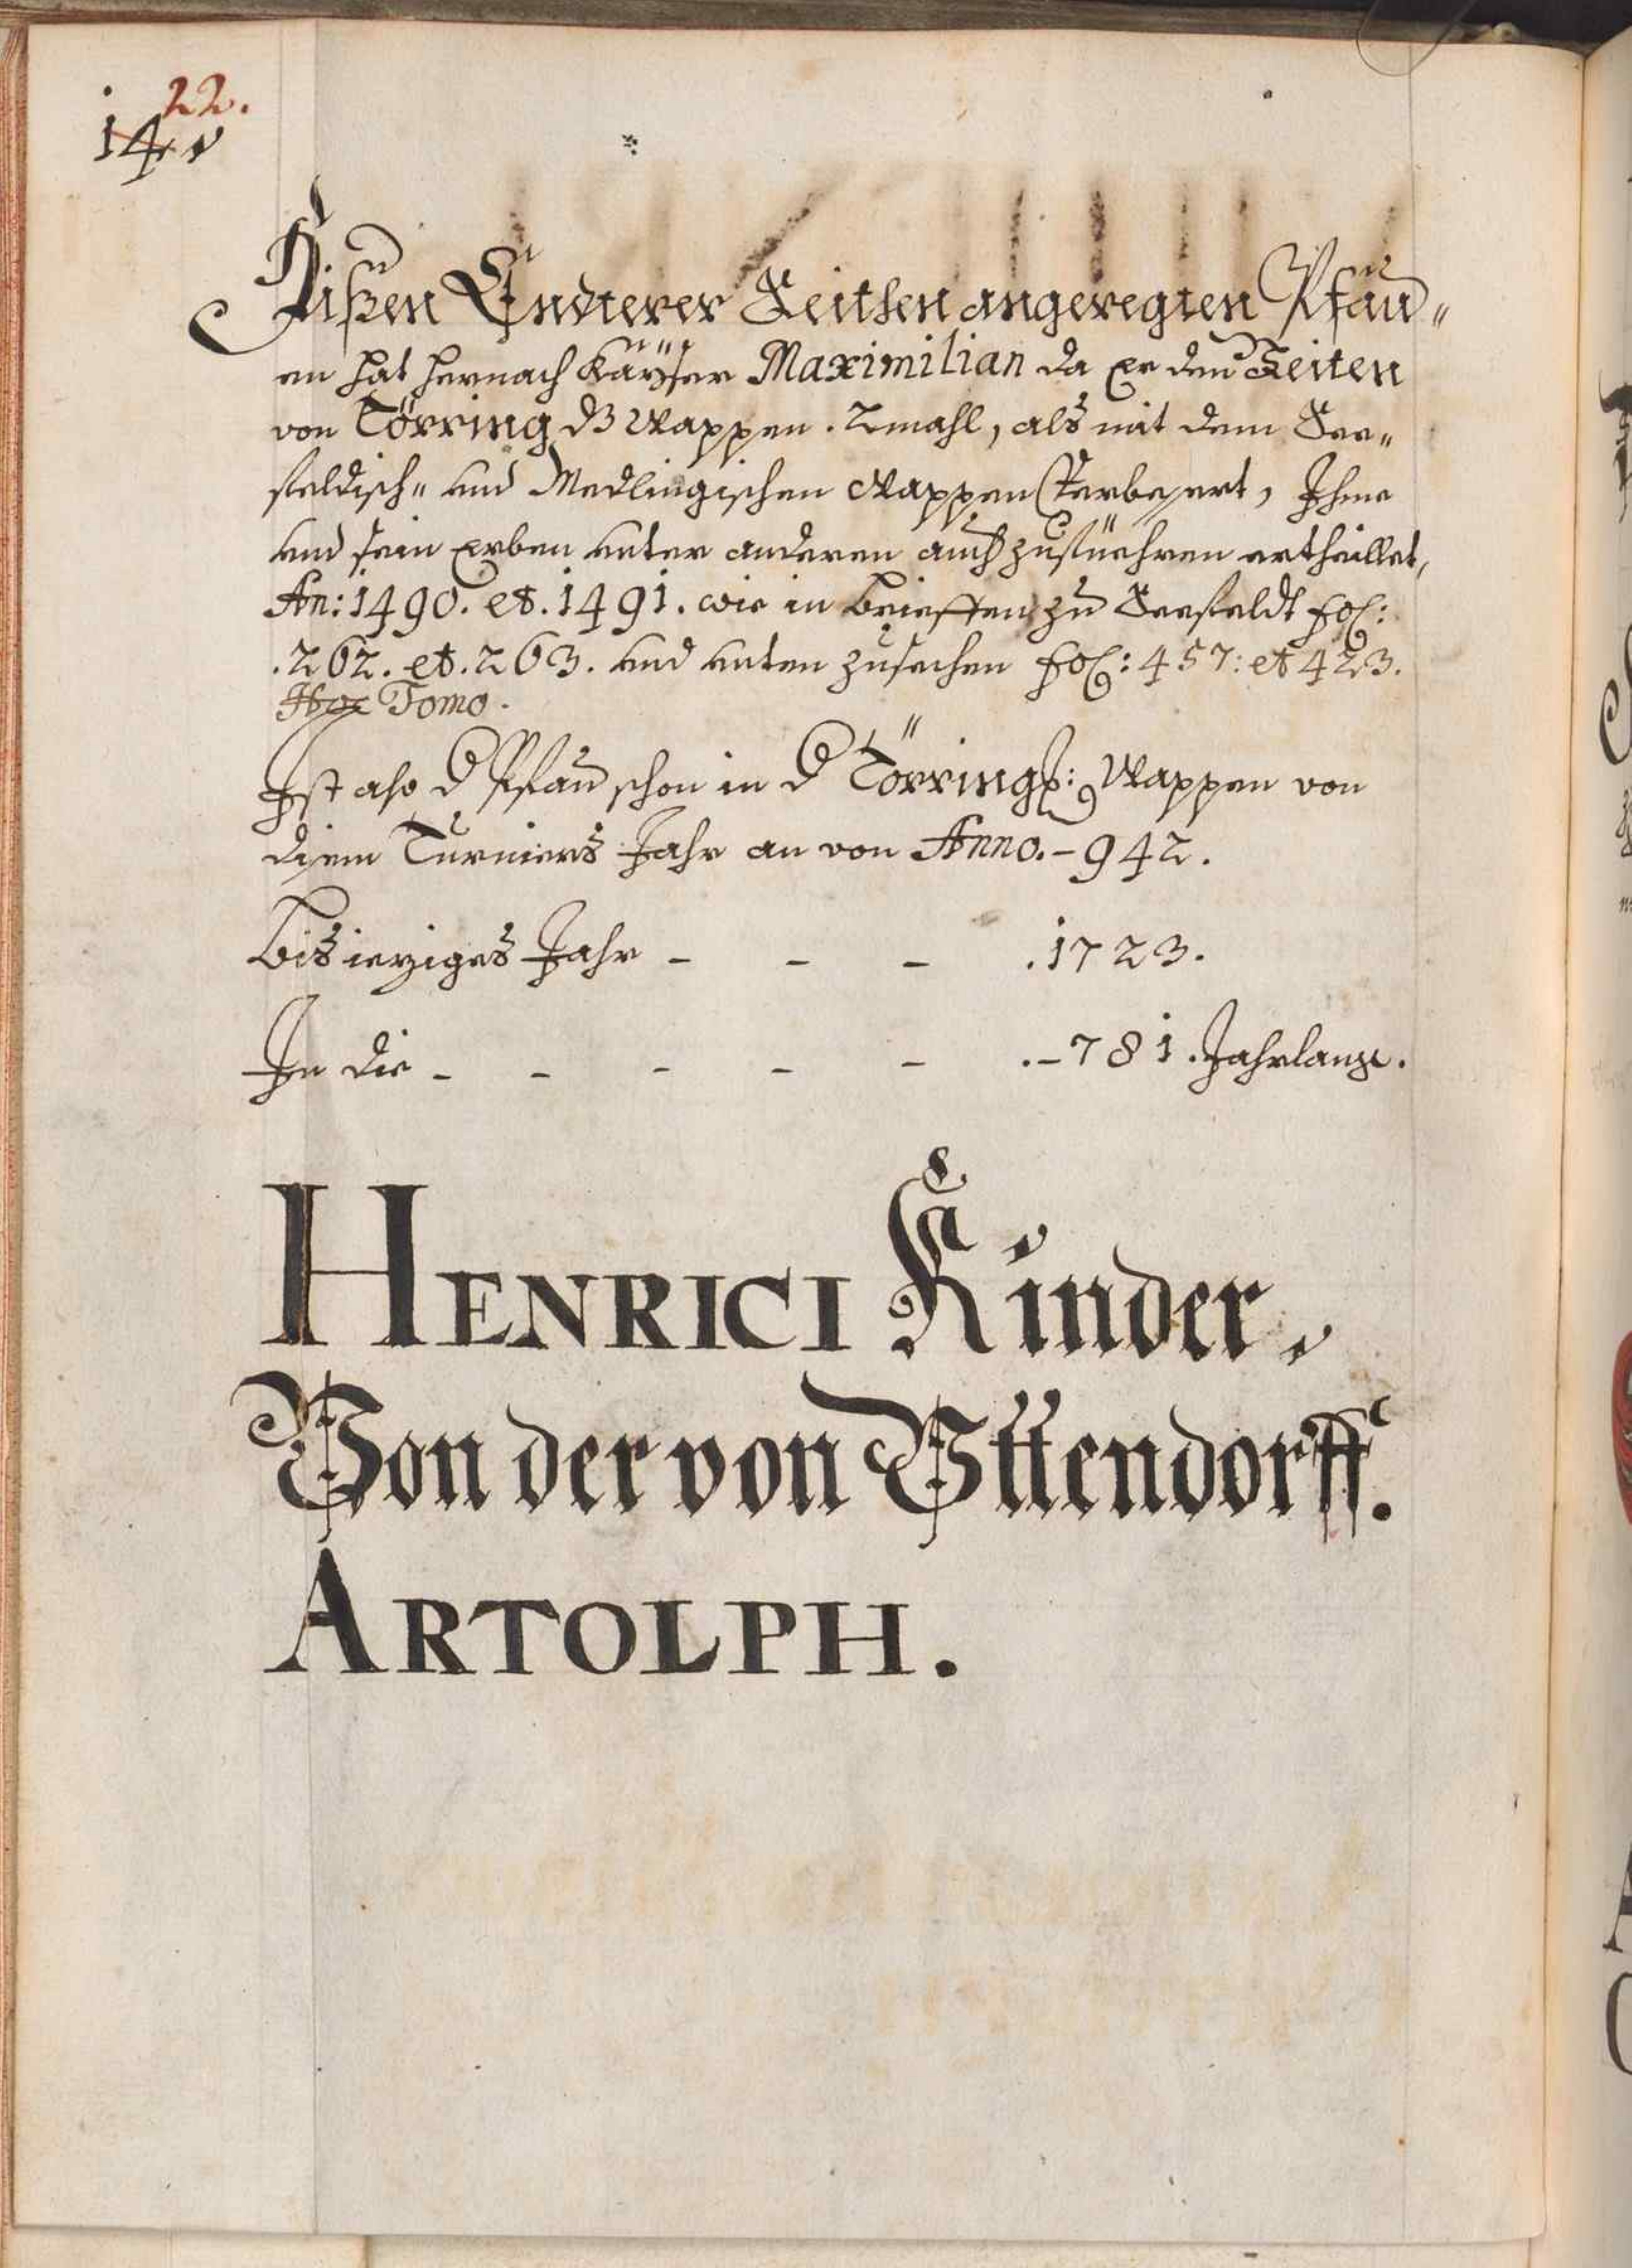 22.
14
Dißen Endterer Seithen angeregten Pfau„
en hat hernach Kaÿser Maximilian da Er den Zeiten
von Törring dz Wappen . 2mahl, als mit dem See„
feldisch„ und Medlingischen Wappen Verbessert, Ihme
und sein Erben unter anderen auch zufüehren ertheillet,
An: 1490. et. 1491. wie in Brieffen zu Seefeldt fol:
.262. et. 263. und unten zusechen fol: 457: et 423.
Hoc Tomo.
Ist also d Pfau schon in d Törring: Wappen von
disem Turniers Jahr an von Anno. – 942.
Bis ieziges Jahr – – – .1723.
In die – – – – – .– 781. Jahrlang.
HENRICI Kinder,
Von der von Uttendorff.
ARTOLPH.